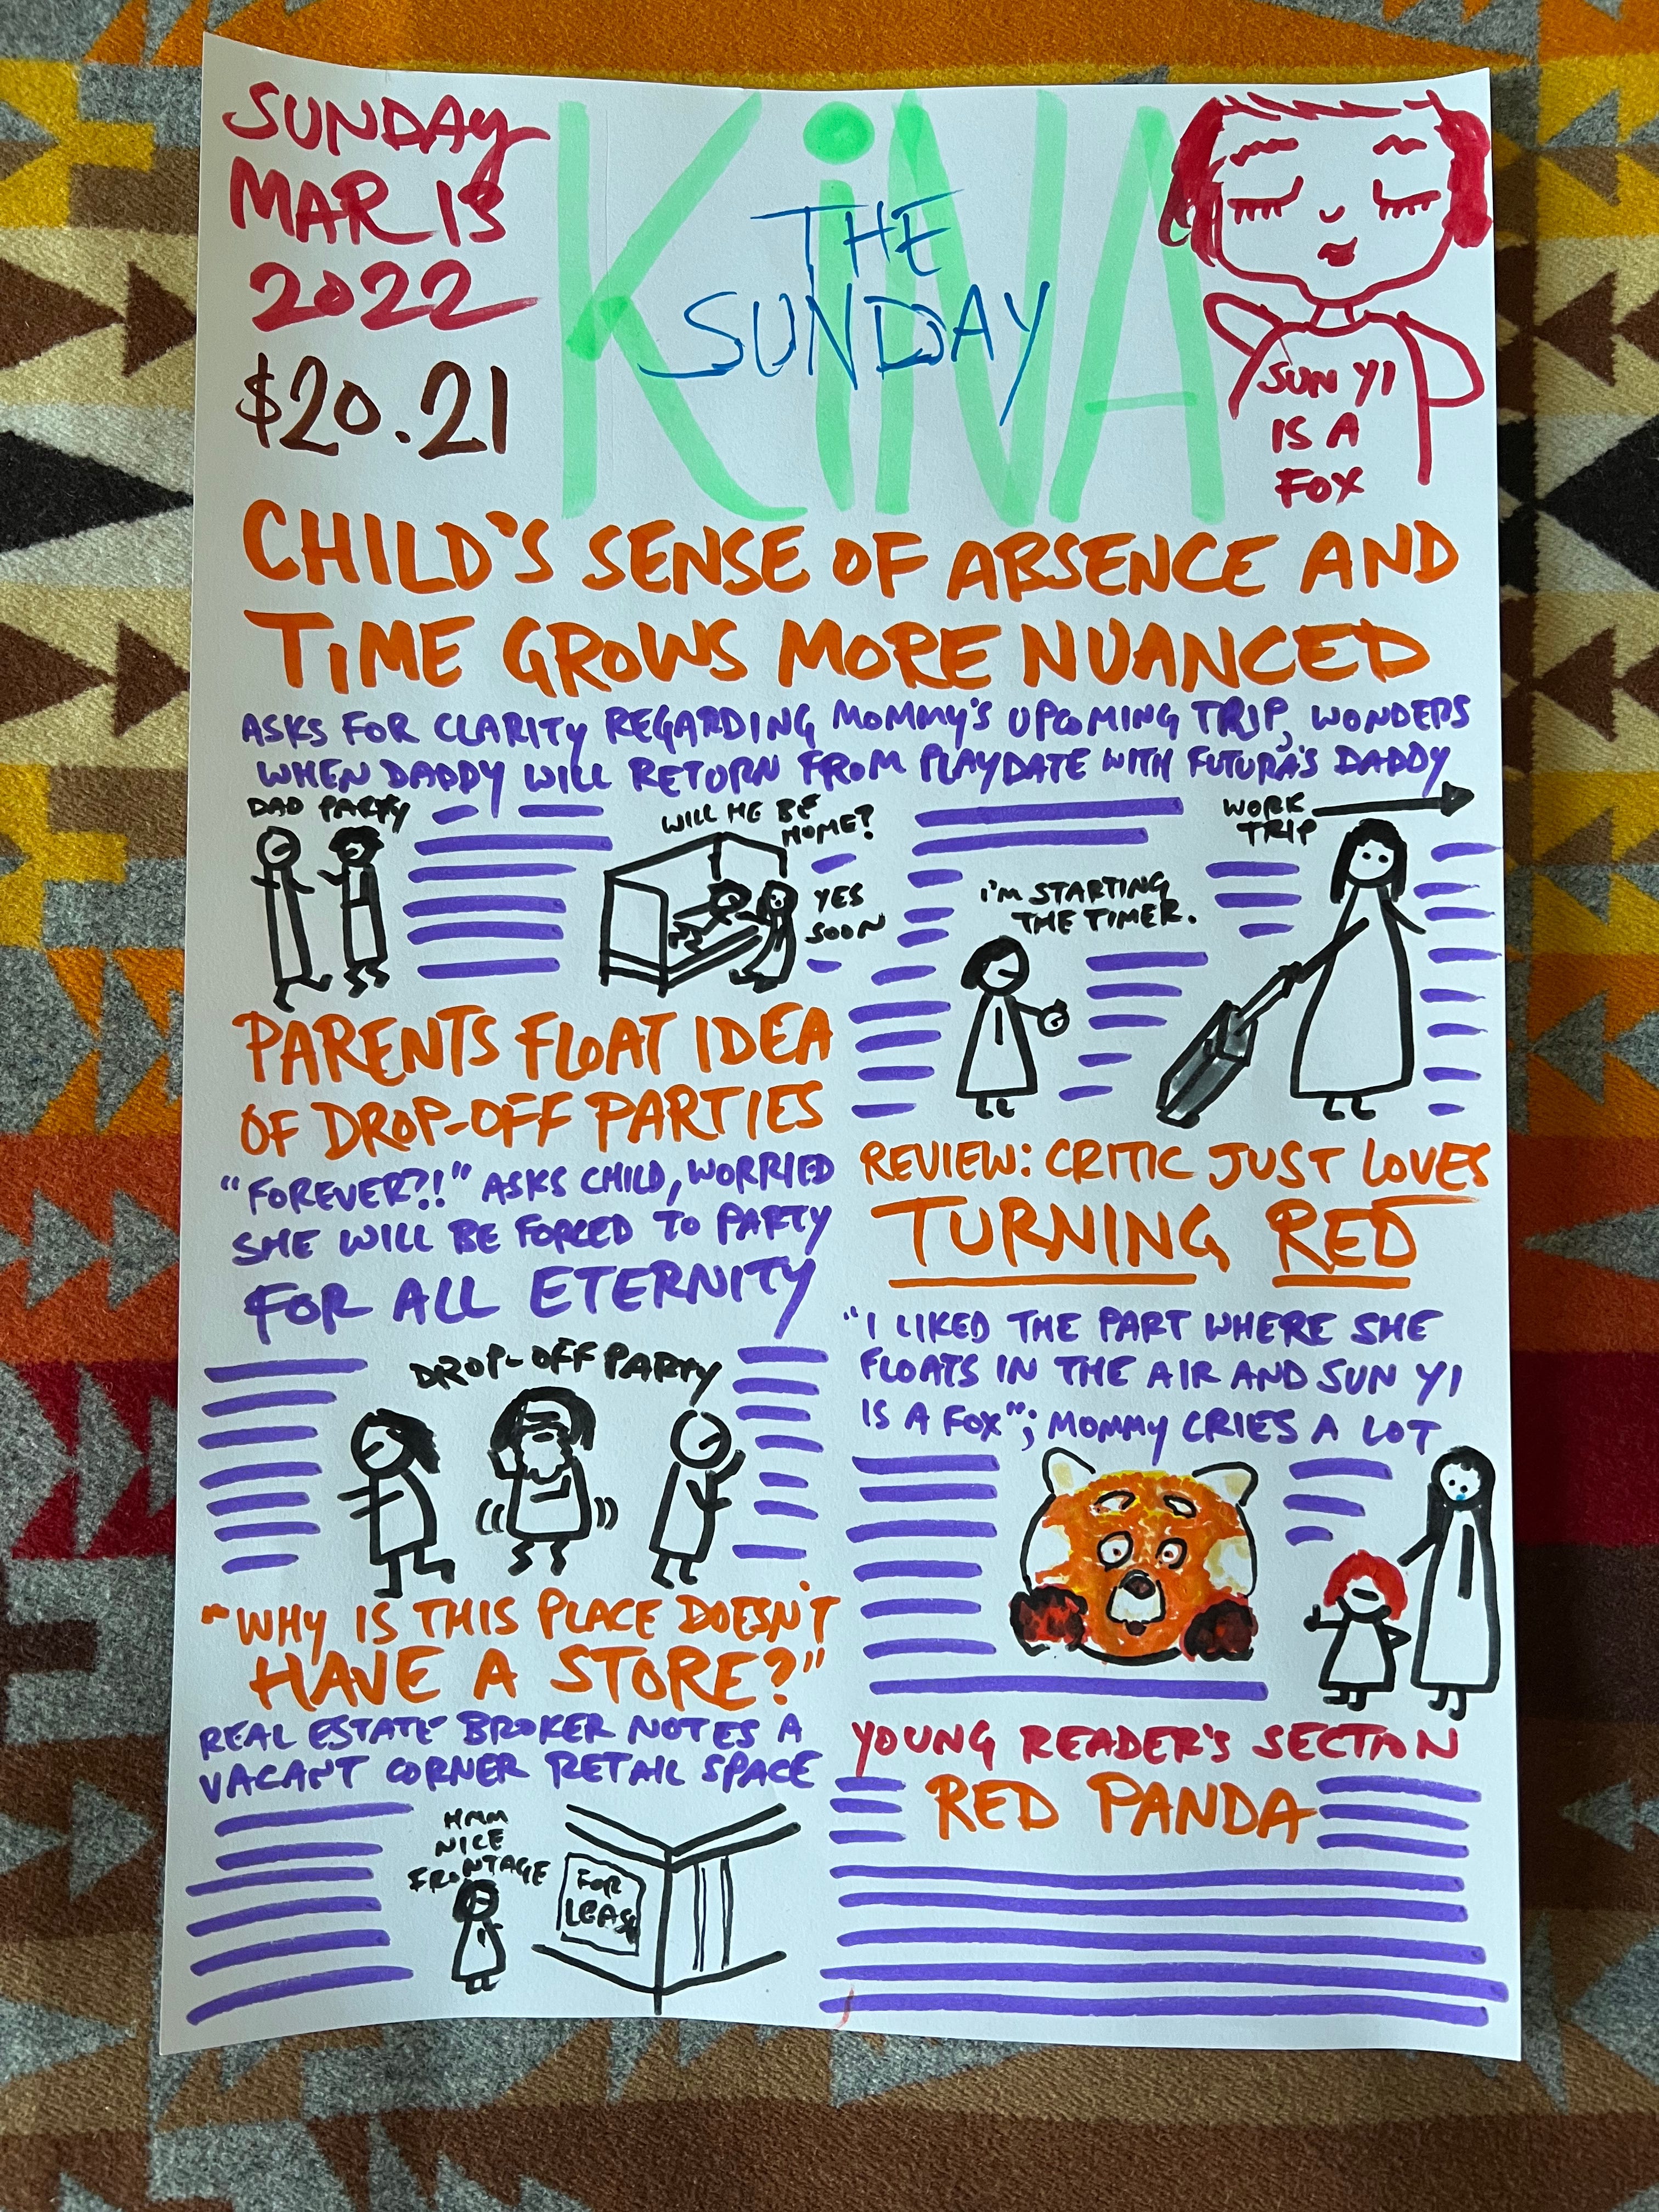 SUNDAY
MAR 13
2022
$20.21
KiNA
THE
SUNDAY
SUN YI
IS A
FOX
CHILD'S SENSE OF ABSENCE AND
TIME GROWS MORE NUANCED
ASKS FOR CLARITY REGARDING MOMMY'S UPCOMING TRIP, WONDERS
WHEN DADDY WILL RETURN FROM PLAYDATE WITH FUTURA'S DADDY
DAD PARTY
WILL HE BE
HOME?
YES
SOON
I'M STARTING
THE TIMER.
WORK
TRIP
PARENTS FLOAT IDEA
OF DROP-OFF PARTIES
"FOREVER?!" ASKS CHILD, WORRIED
SHE WILL BE FORCED TO PARTY
FOR ALL ETERNITY
DROP-OFF PARTY
"WHY IS THIS PLACE DOESN'T
HAVE A STORE?"
REAL ESTATE BROKER NOTES A
VACANT CORNER RETAIL SPACE
HMM
NICE
FRONTAGE
FOR
LEASE
REVIEW: CRITIC JUST LOVES
TURNING RED
"I LIKED THE PART WHERE SHE
FLOATS IN THE AIR AND SUN YI
IS A FOX"; MOMMY CRIES A LOT
YOUNG READER'S SECTION
RED PANDA